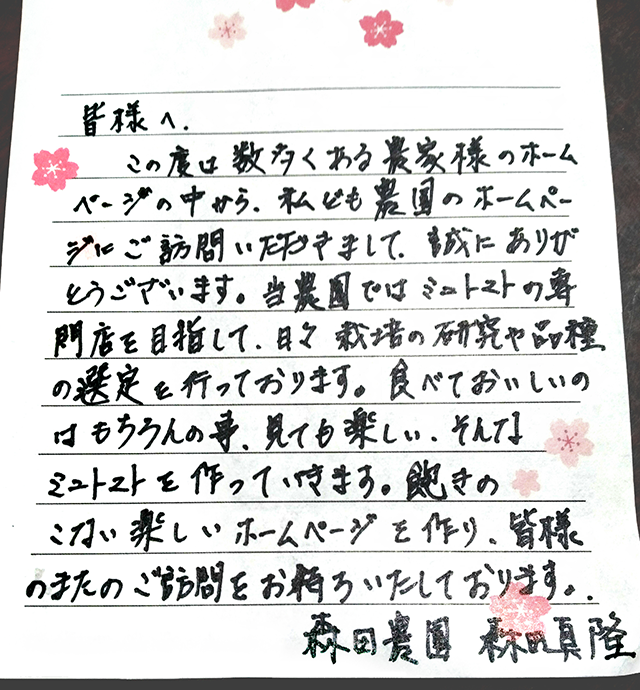 皆様へ.
この度は数多くある農家様のホーム
ページの中から、私ども農園のホームペー
ジにご訪問いただきまして、誠にありが
とうございます。当農園ではミニトマトの専
門店を目指して、日々栽培の研究や品種
の選定を行っております。食べておいしいの
はもちろんの事、見ても楽しい、そんな
ミニトマトを作っていきます。飽きの
こない楽しいホームページを作り、皆様
のまたのご訪問をお待ちいたしております。.
森田農園 森田真隆